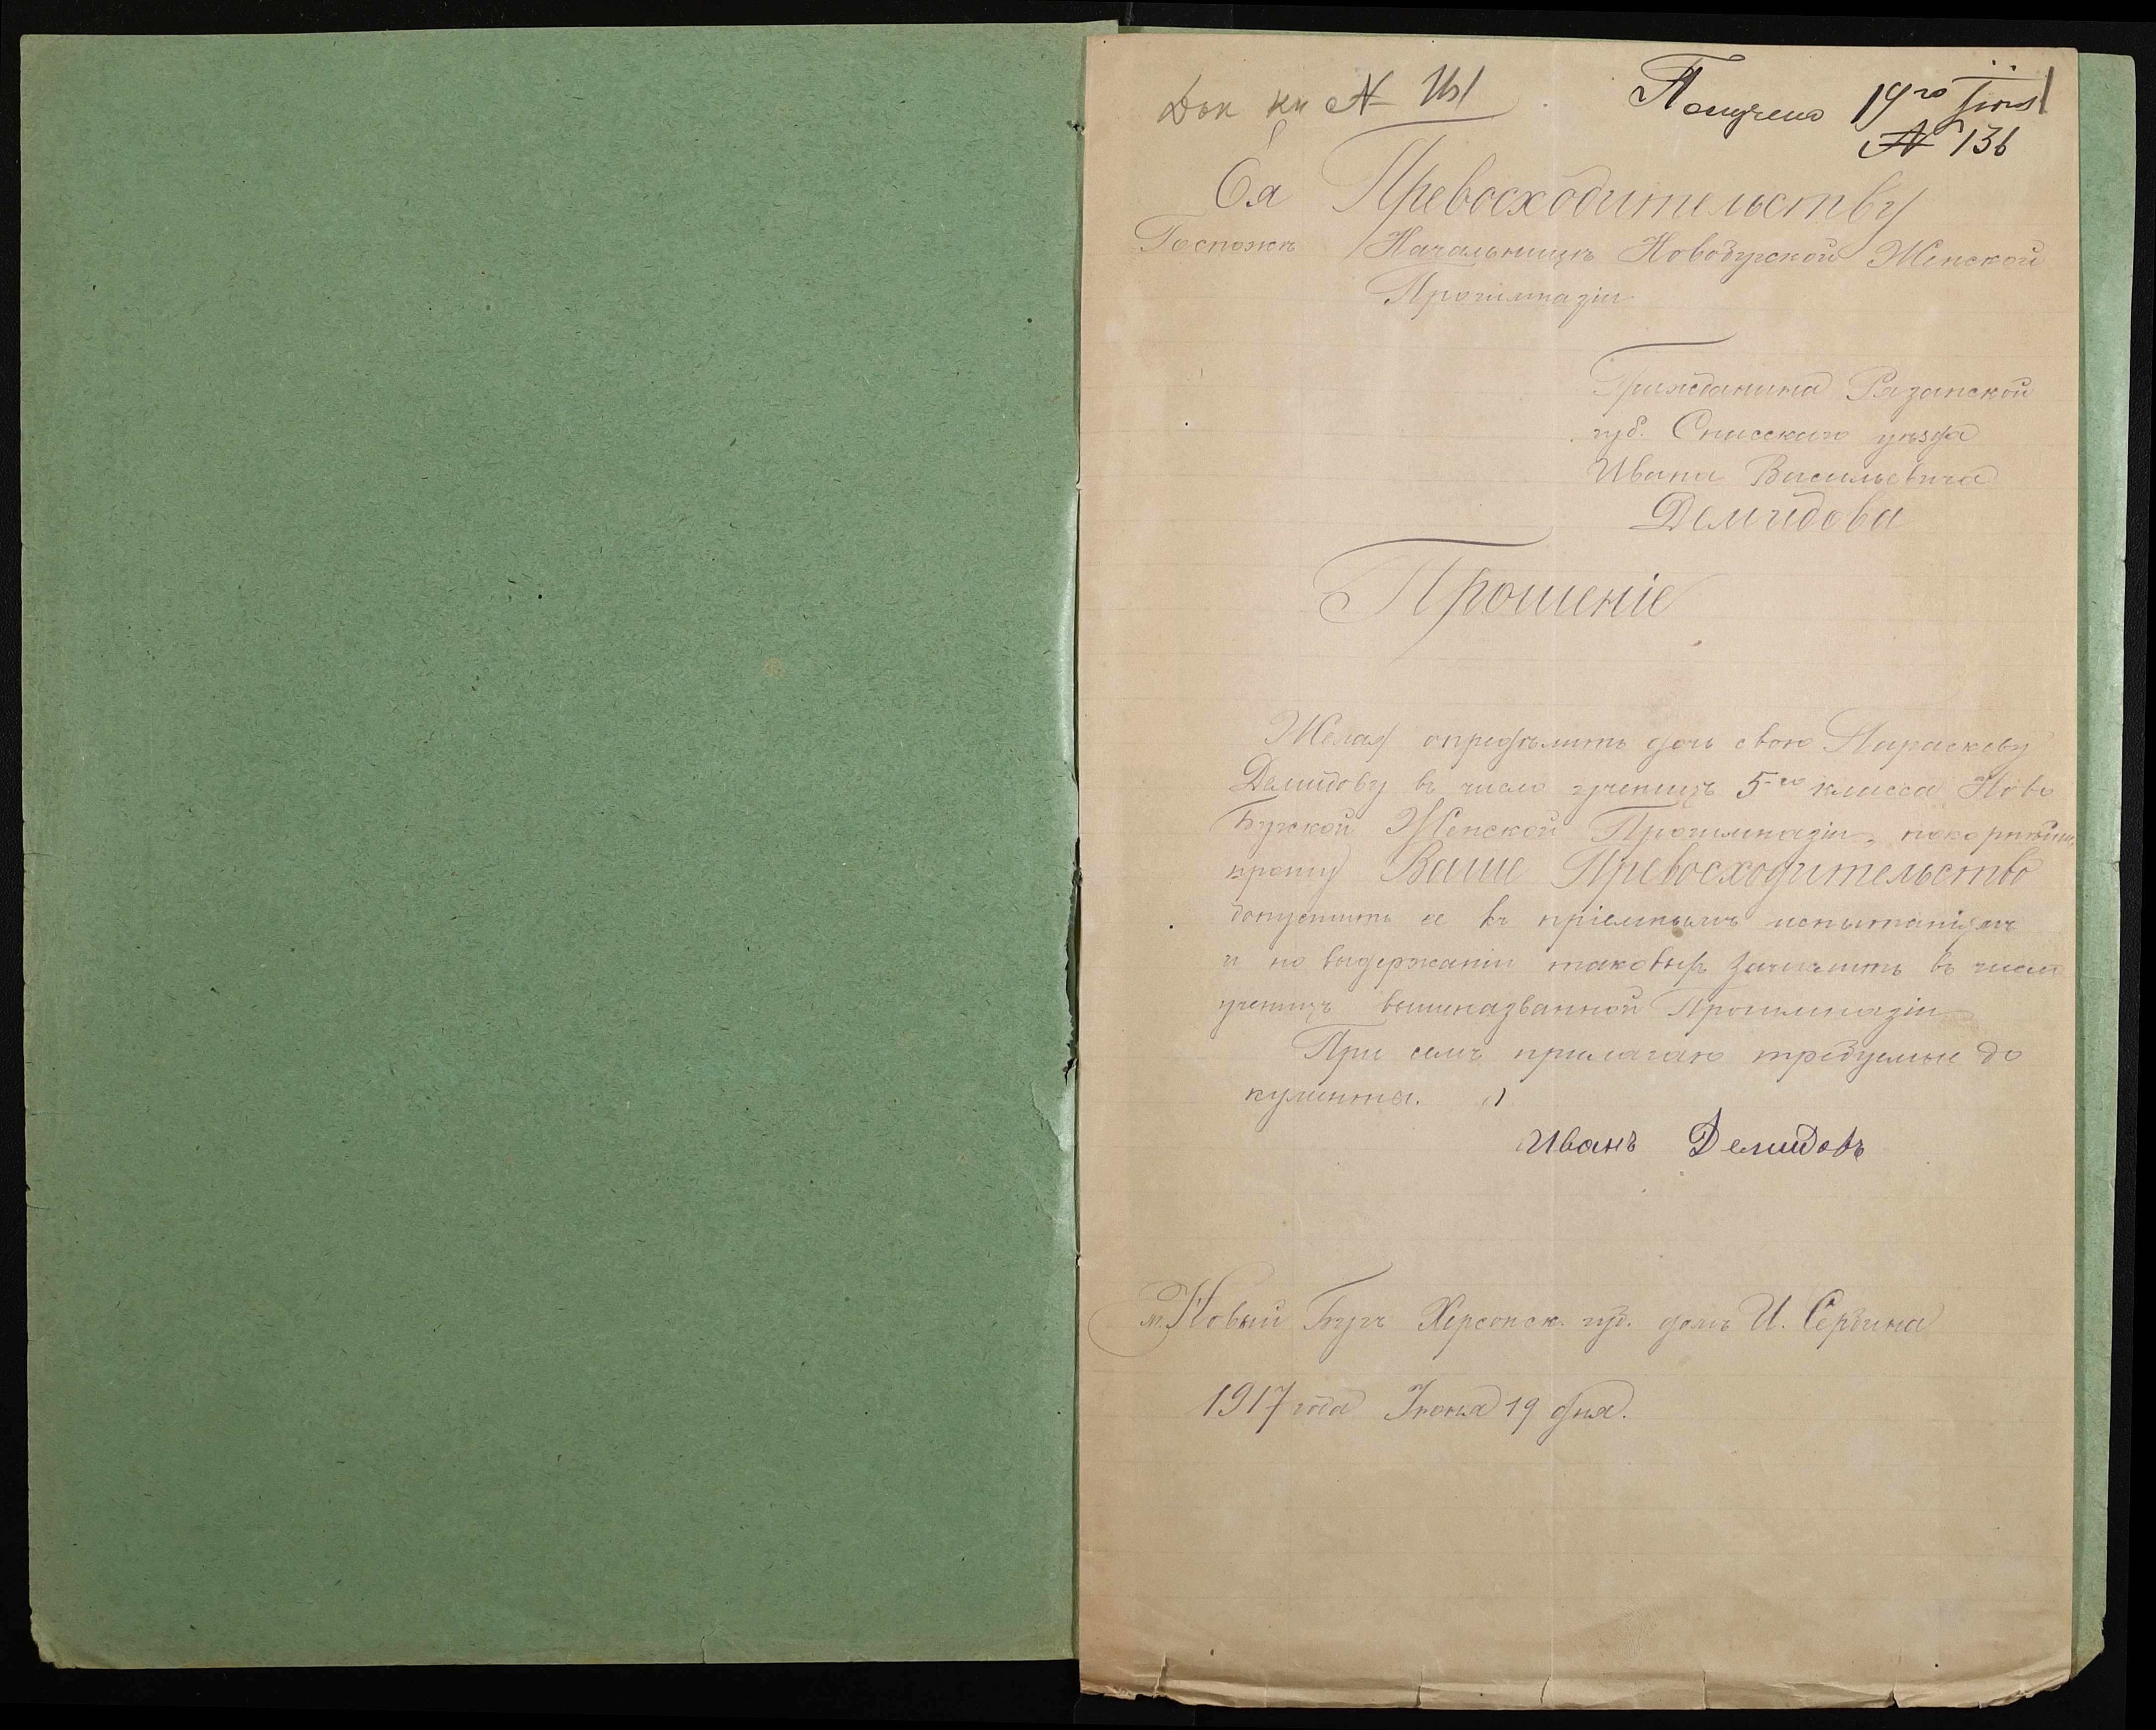 Док кн №
Получено 19го Іюня
№ 136
Ея Превосходительству
Госпожѣ Начальницѣ Новобугской Женской
Прогимназіи
Гражданина Рязанской
губ. Спасскаго уѣзда
Ивана Васильевича
Демидова
Прошеніе
Желая опредѣлить дочь свою Параскеву
Демидову въ число ученицъ 5-го класса Ново
Бугской Женской Прогимназіи, покорнѣйше
прошу Ваше Превосходительство
допустить ее къ пріемнымъ испытаніямъ
и по выдержаніи таковыхъ зачислить въ число
ученицъ вышеназванной Прогимназіи
При семъ прилагаю требуемые до
кументы.
Иванъ Демидовъ
м. Новый Бугъ Херсонск. губ. домъ И. Сербина
1917 года Іюня 19 дня.